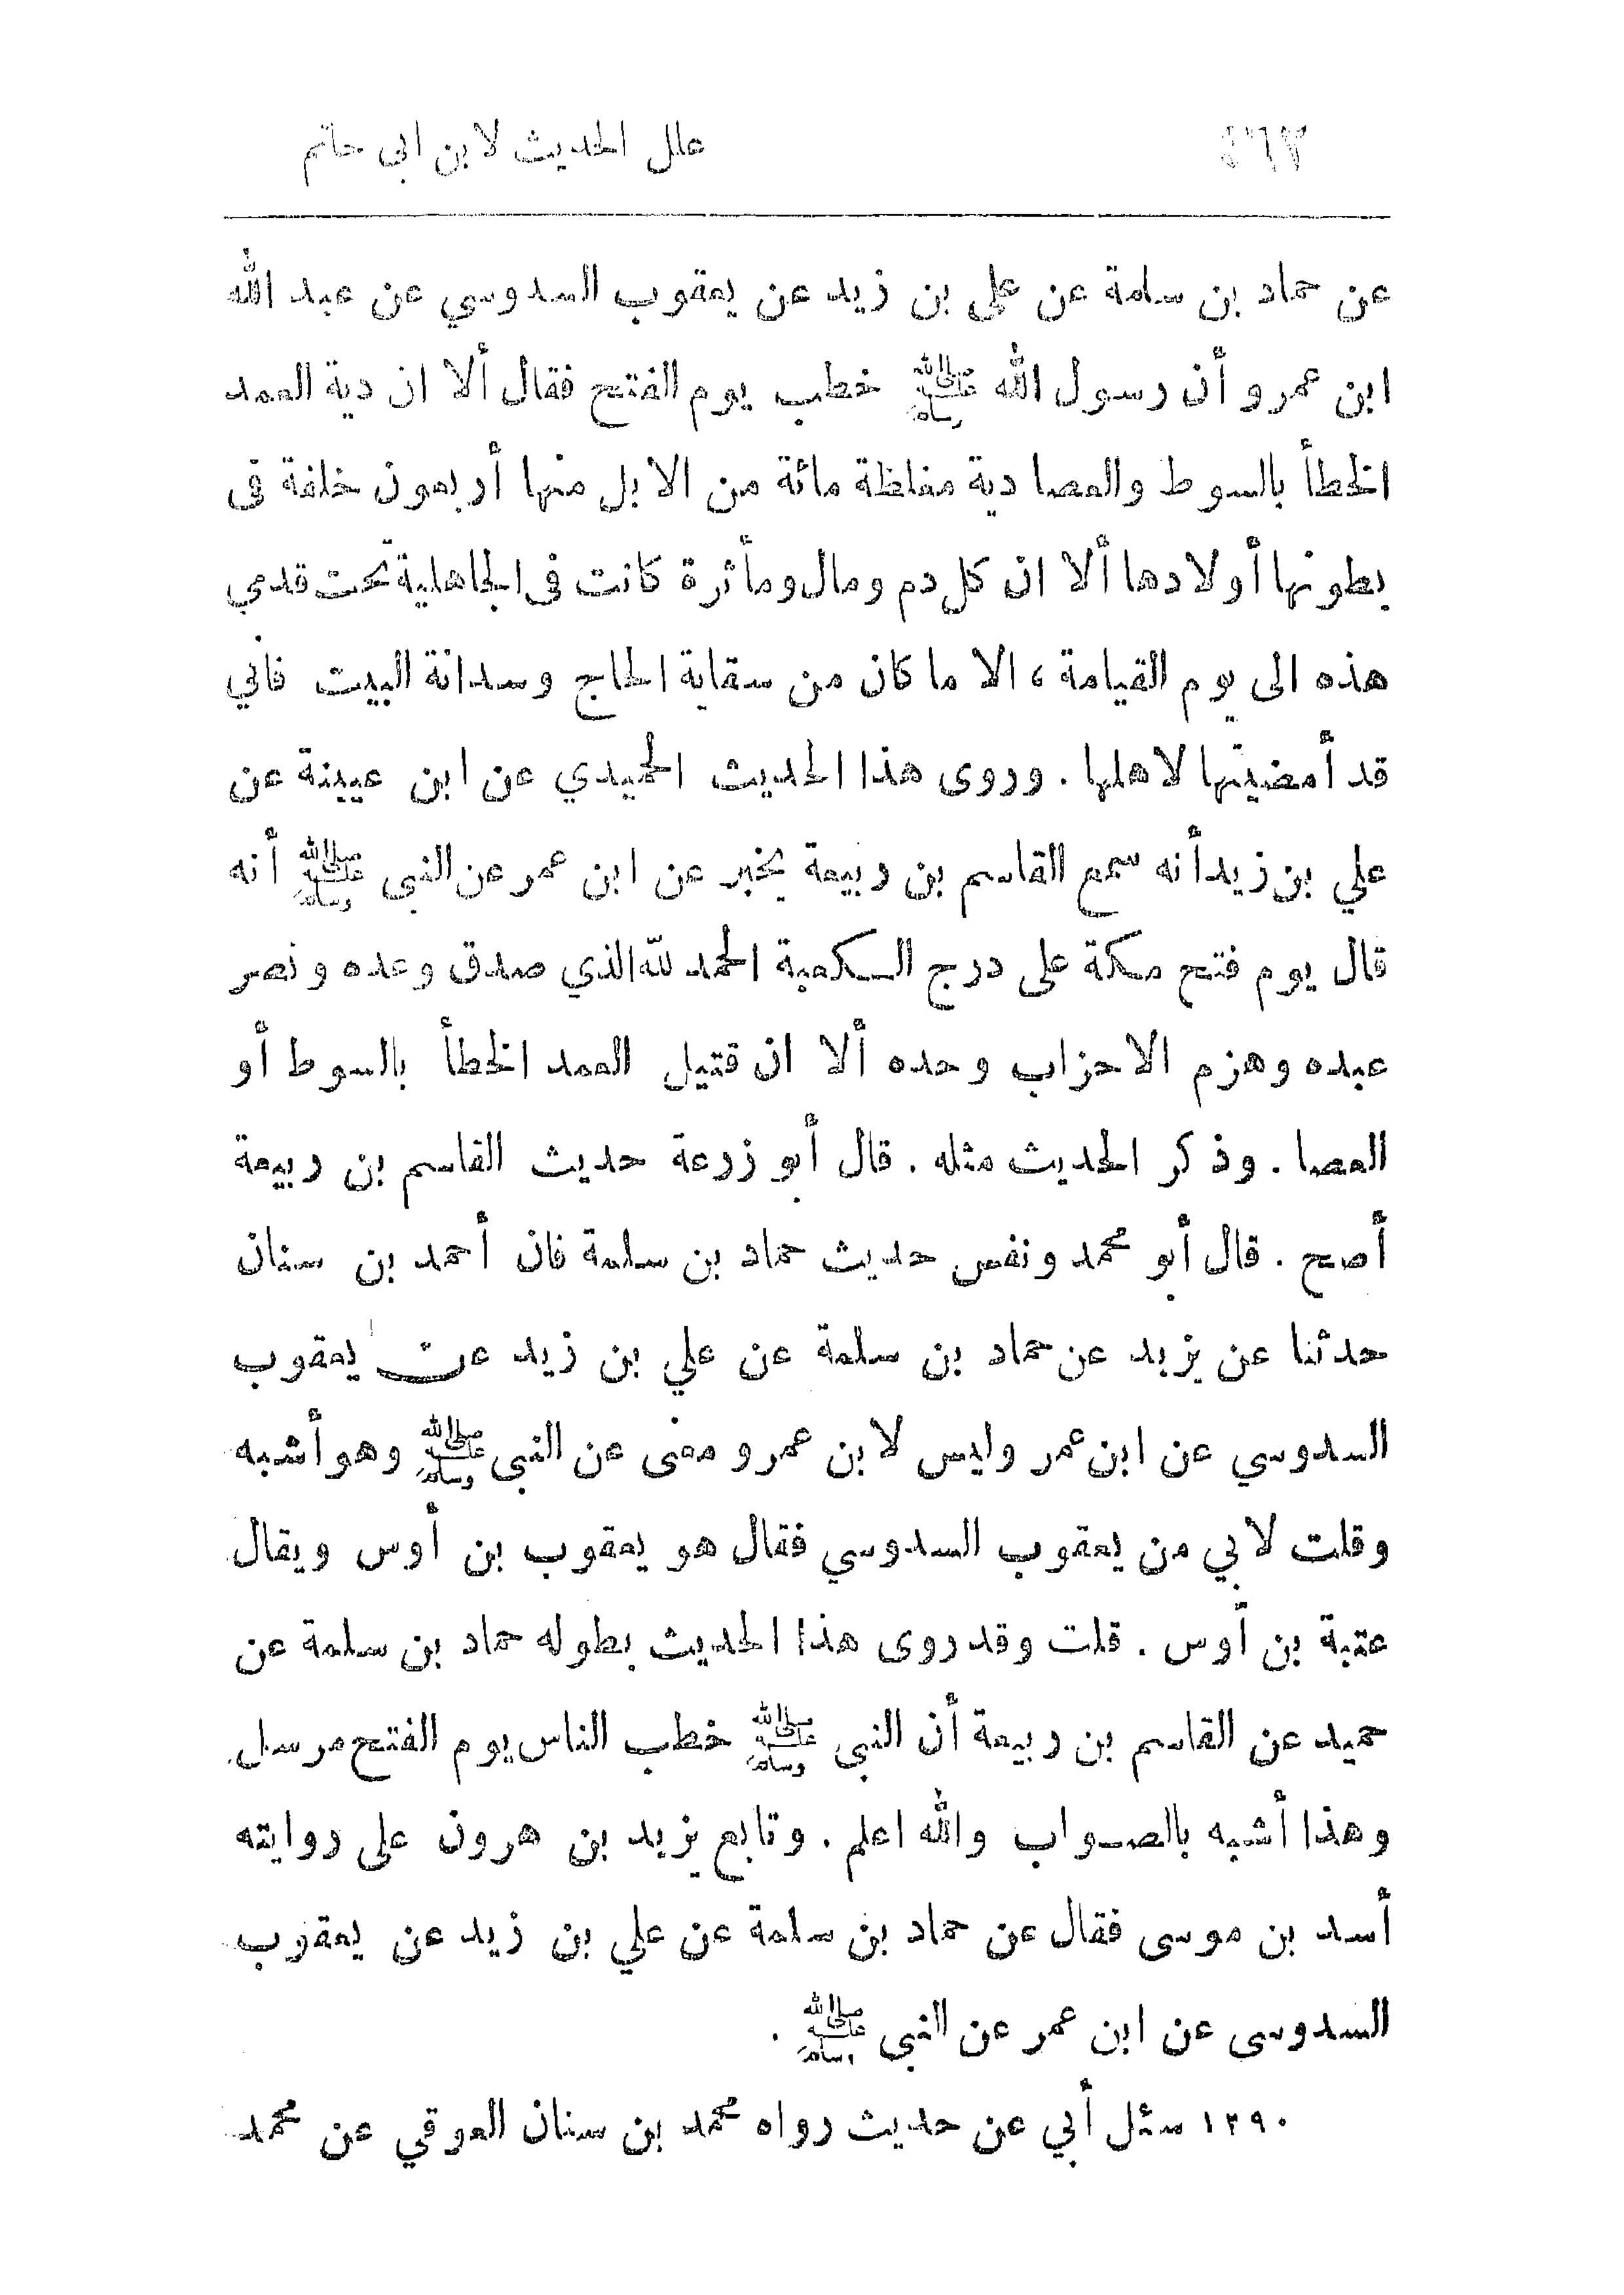 ٤٦٢ علل الحديث لابن ابى حاتم
عن حماد بن سلمة عن على بن زيد عن يعقوب السدوسي عن عبد الله
ابن عمرو أن رسول الله ﷺ خطب يوم الفتح فقال ألا ان دية العمد
الخطأ بالسوط والعصا دية مغلظة مائة من الابل منها أربعون خلفة فى
بطونها أولادها ألا ان كل دم ومال ومأثرة كانت فى الجاهلية تحت قدمي
هذه الى يوم القيامة ، الا ما كان من سقاية الحاج وسدانة البيت فاني
قد أمضيتها لاهلها . وروى هذا الحديث الحميدي عن ابن عيينة عن
علي بن زيد أنه سمع القاسم بن ربيعة يخبر عن ابن عمر عن النبى ﷺ أنه
قال يوم فتح مكة على درج الكعبة الحمد لله الذي صدق وعده ونصر
عبده وهزم الاحزاب وحده ألا ان قتيل العمد الخطأ بالسوط أو
العصا . وذكر الحديث مثله . قال أبو زرعة حديث القاسم بن ربيعة
أصح . قال أبو محمد ونفس حديث حماد بن سلمة فان أحمد بن سنان
حدثنا عن يزيد عن حماد بن سلمة عن علي بن زيد عن يعقوب
السدوسي عن ابن عمر وليس لابن عمرو معنى عن النبى ﷺ وهو أشبه
وقلت لابي من يعقوب السدوسي فقال هو يعقوب بن أوس ويقال
عقبة بن أوس . قلت وقد روى هذا الحديث بطوله حماد بن سلمة عن
حميد عن القاسم بن ربيعة أن النبى ﷺ خطب الناس يوم الفتح مرسل
وهذا أشبه بالصواب والله اعلم . وتابع يزيد بن هرون على روايته
أسد بن موسى فقال عن حماد بن سلمة عن علي بن زيد عن يعقوب
السدوسى عن ابن عمر عن النبى ﷺ .
١٣٩٠ سئل أبي عن حديث رواه محمد بن سنان العوقي عن محمد